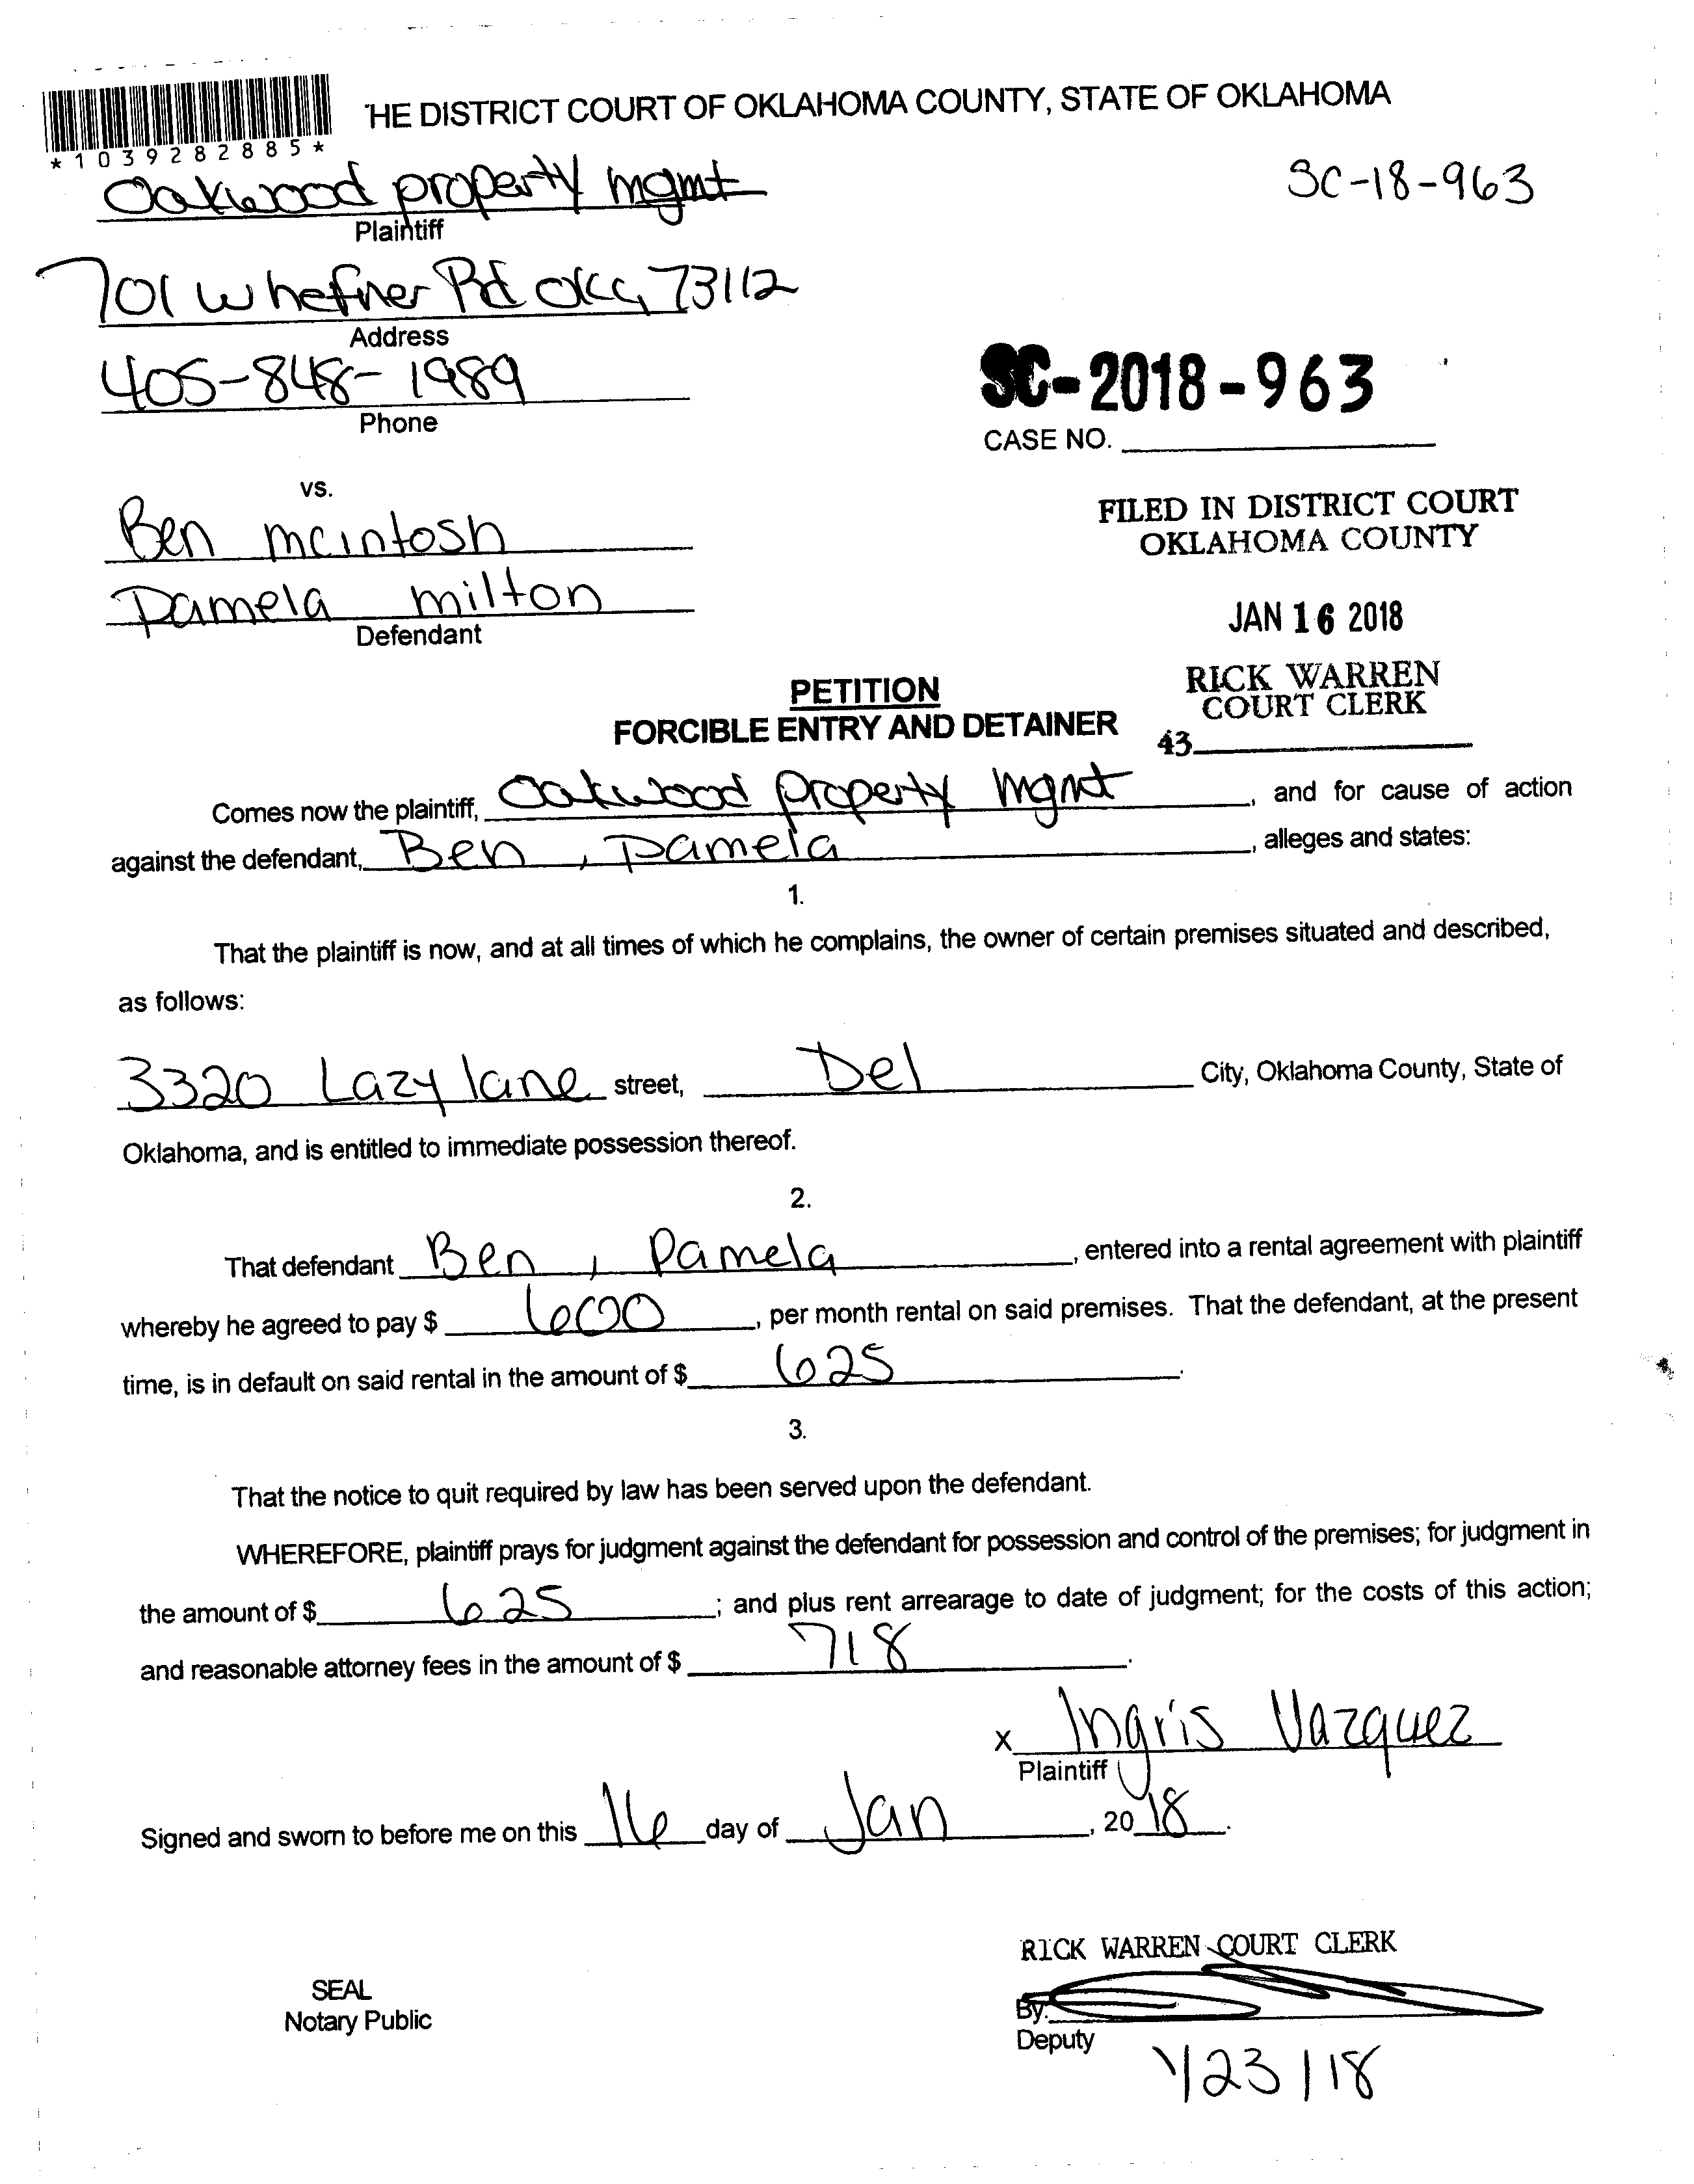 'HE DISTRICT COURT OF OKLAHOMA COUNTY, STATE OF OKLAHOMA
*1039282885*
Oakwood property mgmt
SC-18-963
Plaintiff
701 W hefner Rd OKC, 73112
Address
405-848-1989
Phone
SC-2018-963
CASE NO.
vs.
Ben mcintosh
Pamela milton
Defendant
FILED IN DISTRICT COURT
OKLAHOMA COUNTY
JAN 16 2018
RICK WARREN
COURT CLERK
43
PETITION
FORCIBLE ENTRY AND DETAINER
Comes now the plaintiff, Oakwood property mgmt, and for cause of action
against the defendant, Ben, Pamela, alleges and states:
1.
That the plaintiff is now, and at all times of which he complains, the owner of certain premises situated and described,
as follows:
3320 Lazy lane street, Del City, Oklahoma County, State of
Oklahoma, and is entitled to immediate possession thereof.
2.
That defendant Ben, Pamela, entered into a rental agreement with plaintiff
whereby he agreed to pay $ 600, per month rental on said premises. That the defendant, at the present
time, is in default on said rental in the amount of $ 625.
3.
That the notice to quit required by law has been served upon the defendant.
WHEREFORE, plaintiff prays for judgment against the defendant for possession and control of the premises; for judgment in
the amount of $ 625; and plus rent arrearage to date of judgment; for the costs of this action;
and reasonable attorney fees in the amount of $ 718.
x Ingris Vazquez
Plaintiff
Signed and sworn to before me on this 16 day of Jan, 2018.
RICK WARREN COURT CLERK
SEAL
Notary Public
By:
Deputy
1/23/18